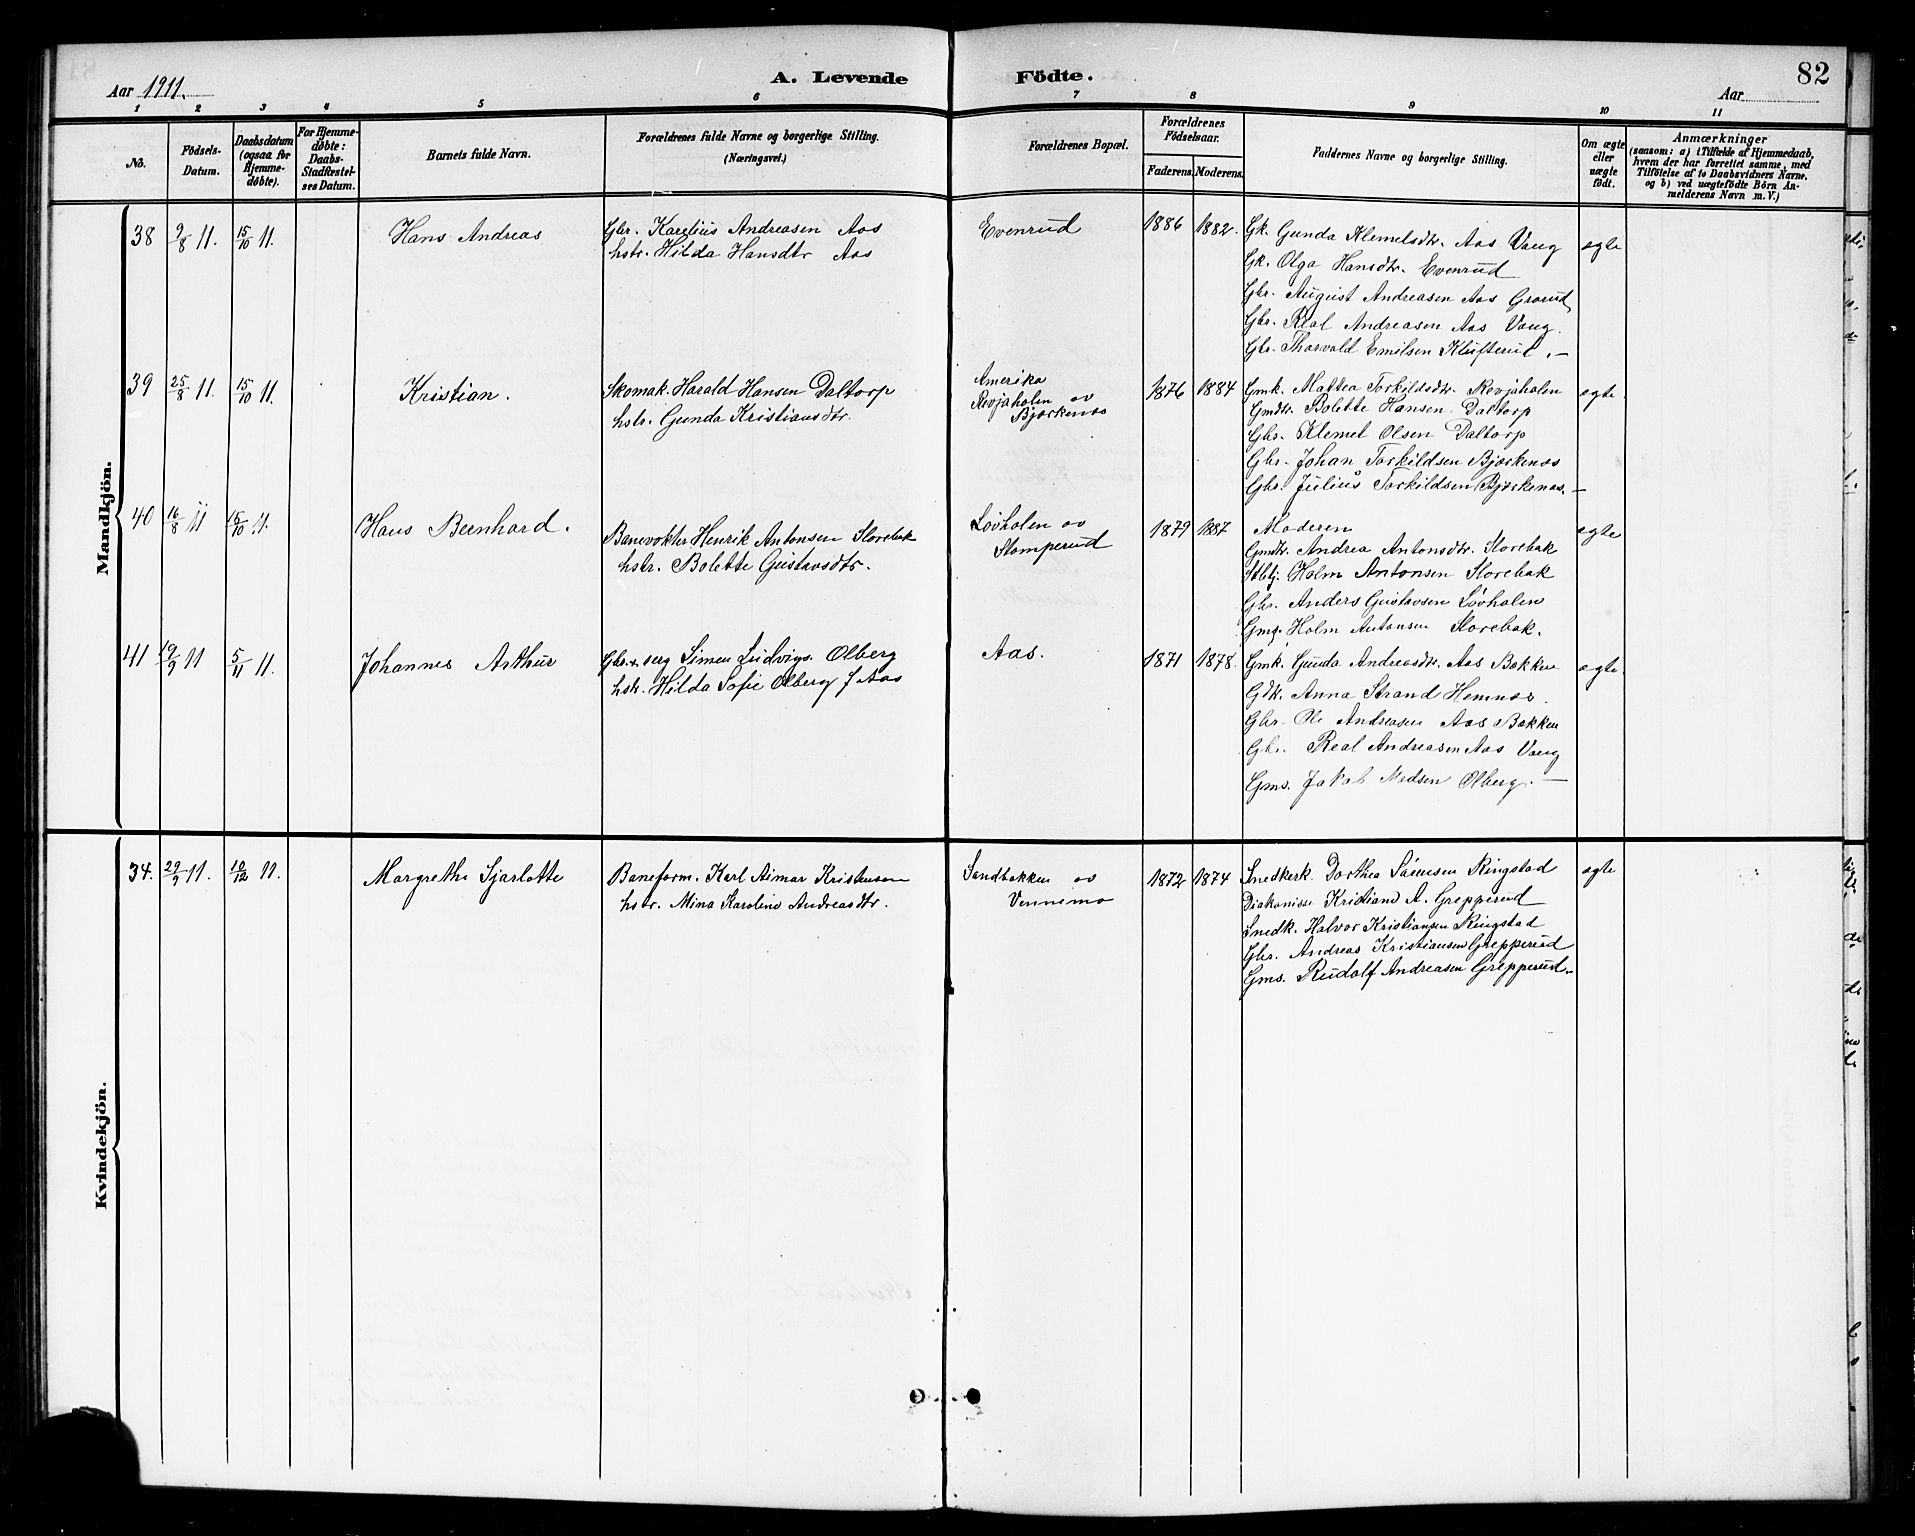 82
Aar 1911.
A. Levende Födte.
Aar
1 2 3 4 5 6 7 8 9 10 11
No.
Födsels-Datum.
Daabsdatum (ogsaa for Hjemme-döbte).
For Hjemme-döbte: Daabs-Stadfæstel-ses Datum.
Barnets fulde Navn.
Forældrenes fulde Navne og borgerlige Stilling.
(Næringsvei.)
Forældrenes Bopæl.
Forældrenes Födselsaar.
Faderens. Moderens.
Faddernes Navne og borgerlige Stilling.
Om ægte eller uægte födt.
Anmærkninger
(saasom: a) i Tilfælde af Hjemmedaab,
hvem der har forrettet samme, med
Tilföielse af to Daabsvidners Navne,
og b) ved uægtefödte Börn An-
melderens Navn m. V.)
Mandkjön.
38 9/8 11. 15/10 11. Hans Andreas
Gbr. Karelius Andreasen Aas
hstr. Hilda Hansdtr Aas
Evenrud
1886 1882.
Gk. Gunda Klemetsdtr. Aas Vang
Gk. Olga Hansdtr. Evenrud
Gbr. August Andreasen Aas Grorud
Gbr. Real Andreasen Aas Vang.
Gbr. Thorvald Emilsen Klufterud.
ægte
39 25/8 11. 15/10 11. Kristian.
Skomak. Harald Hansen Daltorp
hstr. Gunda Kristiansdtr.
Amerika
Revjaholen av
Bjørkenæs
1876 1884
Gmk. Mattea Torkildsdtr. Revjaholen
Gmdtr. Bolette Hansen Daltorp
Gbr. Klemet Olsen Daltorp
Gbr. Johan Torkildsen Bjørkenæs
Gbr. Julius Torkildsen Bjørkenæs.
ægte
40 16/8 11 15/10 11. Hans Bernhard.
Banevokter Henrik Antonsen Storebak
hstr. Bolette Gustavsdtr.
Løvholen av
Stomperud
1879 1887
Moderen
Gmdtr. Andrea Antonsdtr. Storebak
Holm Antonsen Storebak
Gbr. Anders Gustavsen Løvholen
Gmg. Holm Antonsen Storebak.
ægte
41 19/9 11 5/11 11. Johannes Arthur
Gbr. + serg Simen Ludvigs. Olberg
hstr. Hilda Sofie Olberg f Aas
Aas.
1871 1878.
Gmk. Gunda Andreasdtr. Aas Bakken
Gdk. Anna Strand Hemnæs.
Gbr. Ole Andreasen Aas Bakken
Gbr. Real Andreasen Aas Vang
Gms. Jakob Madsen Olberg.
ægte
Kvindekjön.
34. 29/9 11. 10/12 11. Margrethe Sjarlotte
Baneform. Karl Aimar Kristensen
hstr. Mina Karoline Andreasdtr.
Sandbakken av
Vennemo
1872 1874
Snedkerk. Dorthea Sørensen Ringstad
Diakonisse Kristiane A. Grepperud
Snedk. Halvor Kristiansen Ringstad
Gbr. Andreas Kristiansen Grepperud
Gms. Rudolf Andreasen Grepperud
ægte